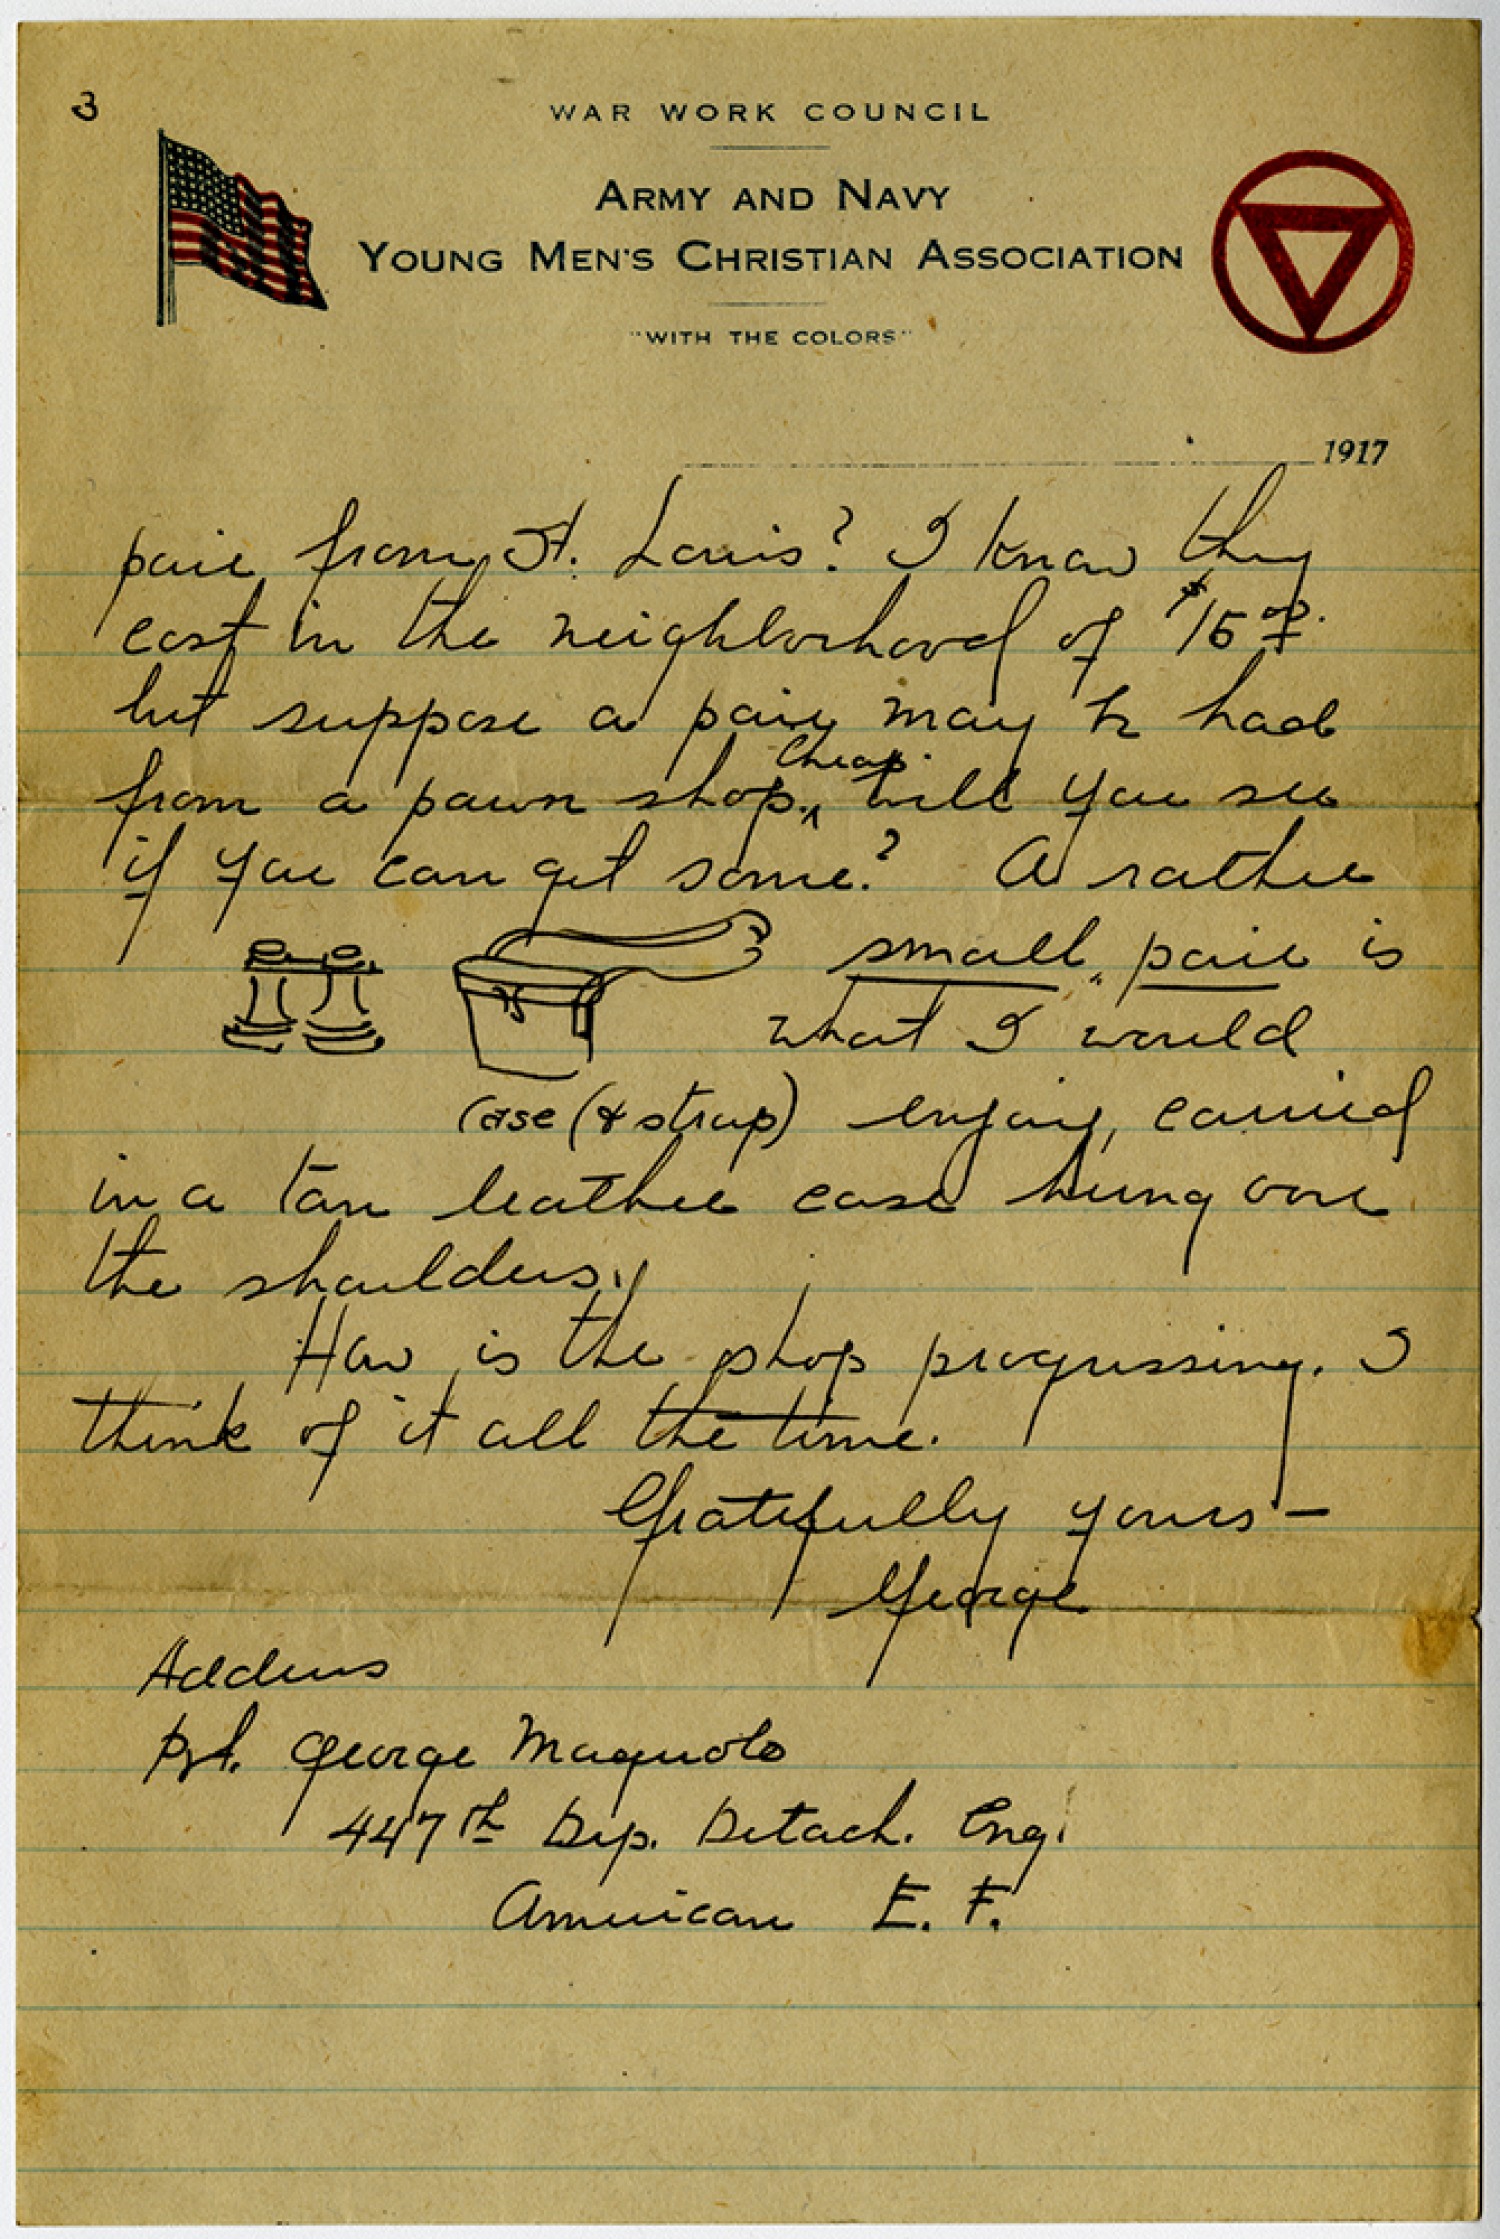 3
WAR WORK COUNCIL
ARMY AND NAVY
YOUNG MEN'S CHRISTIAN ASSOCIATION
"WITH THE COLORS"
1917
pair from St. Louis? I know they
cost in the neighborhood of $15 00.
but suppose a pair may be had
from a pawn shop, cheap. Will you see
if you can get some? A rather
small, pair is
what I would
case (& strap) enjoy, carried
in a tan leather case hung over
the shoulders.
How is the shop progressing. I
think of it all the time.
Gratefully yours —
George
Address
Pvt. George Magnolo
447th Dep. Detach. Eng.
American E. F.